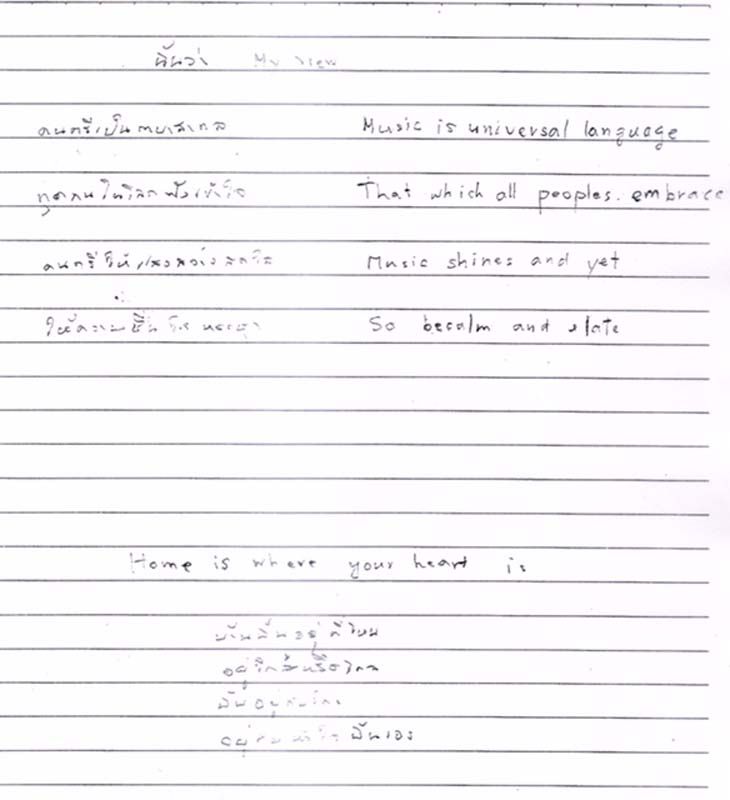 ฉันว่า My view
ดนตรีเป็นภาษาสากล Music is universal language
ทุกคนในโลกฟังเข้าใจ That which all peoples. embrace
ดนตรีให้แสงสว่างสดใส Music shines and yet
ให้ความชื่นใจ So becalm and elate
Home is where your heart is
บ้านฉันอยู่ที่ไหน
อยู่ใกล้หรือไกล
ฉันอยู่กับใคร
อยู่กับหัวใจฉันเอง